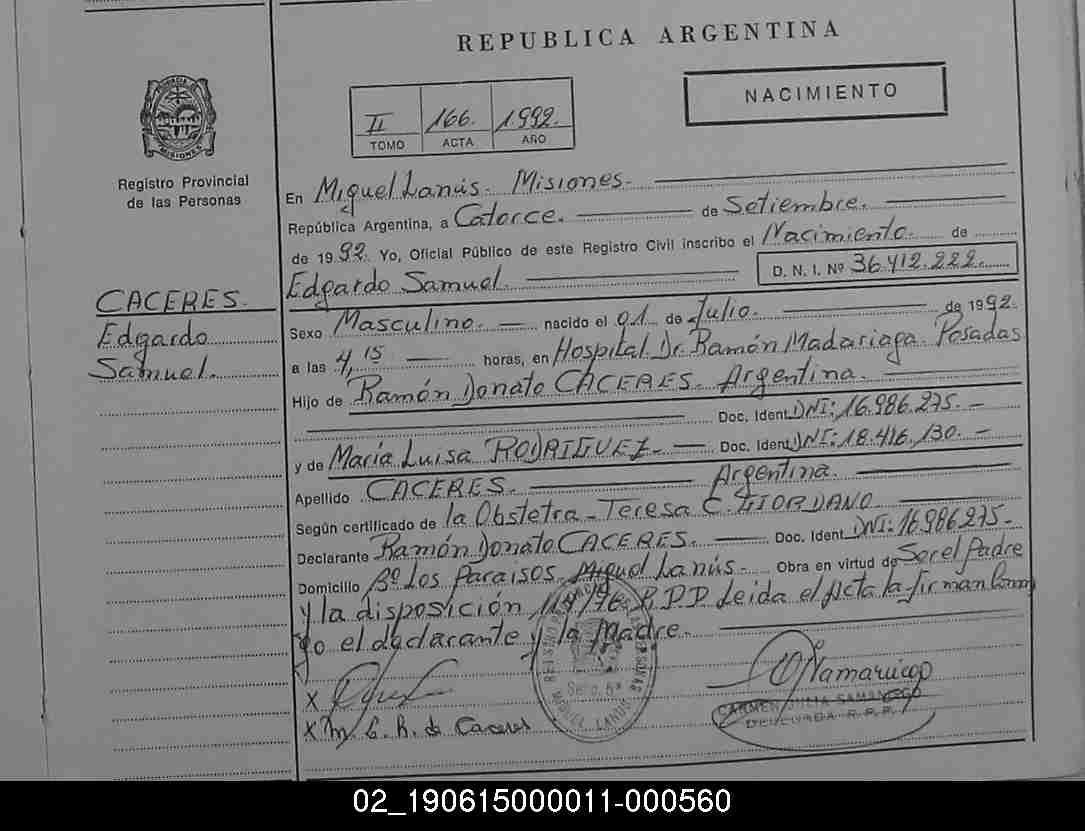 REPUBLICA ARGENTINA
PROVINCIA DE MISIONES
Registro Provincial
de las Personas
II 166. 1992.
TOMO ACTA AÑO
NACIMIENTO
CACERES.
Edgardo
Samuel.
En Miguel Lanús. Misiones.
República Argentina, a Catorce. de Setiembre.
de 1992. Yo, Oficial Público de este Registro Civil inscribo el Nacimiento. de
Edgardo Samuel. D. N. I. Nº 36.412.222.
Sexo Masculino. nacido el 01 de Julio. de 1992.
a las 4,15 horas, en Hospital Dr. Ramón Madariaga. Posadas
Hijo de Ramón Donato CACERES. Argentina.
Doc. Ident. DNI: 16.986.275.-
y de María Luisa RODRIGUEZ.- Doc. Ident. DNI: 18.416.130.-
Argentina.
Apellido CACERES.
Según certificado de la Obstetra - Teresa C. GIORDANO
Declarante Ramón Donato CACERES. Doc. Ident. DNI: 16.986275.-
Domicilio Bº Los Paraisos. Miguel Lanús. Obra en virtud de Ser el Padre
y la disposición 14/76 R.P.P. Leida el Acta la firman Conmi
go el declarante y la Madre.
X
X M. L. R. de Caceres
MIGUEL LANUS
CARMEN JULIA SAMANIEGO
DELEGADA R. P. P.
02_190615000011-000560